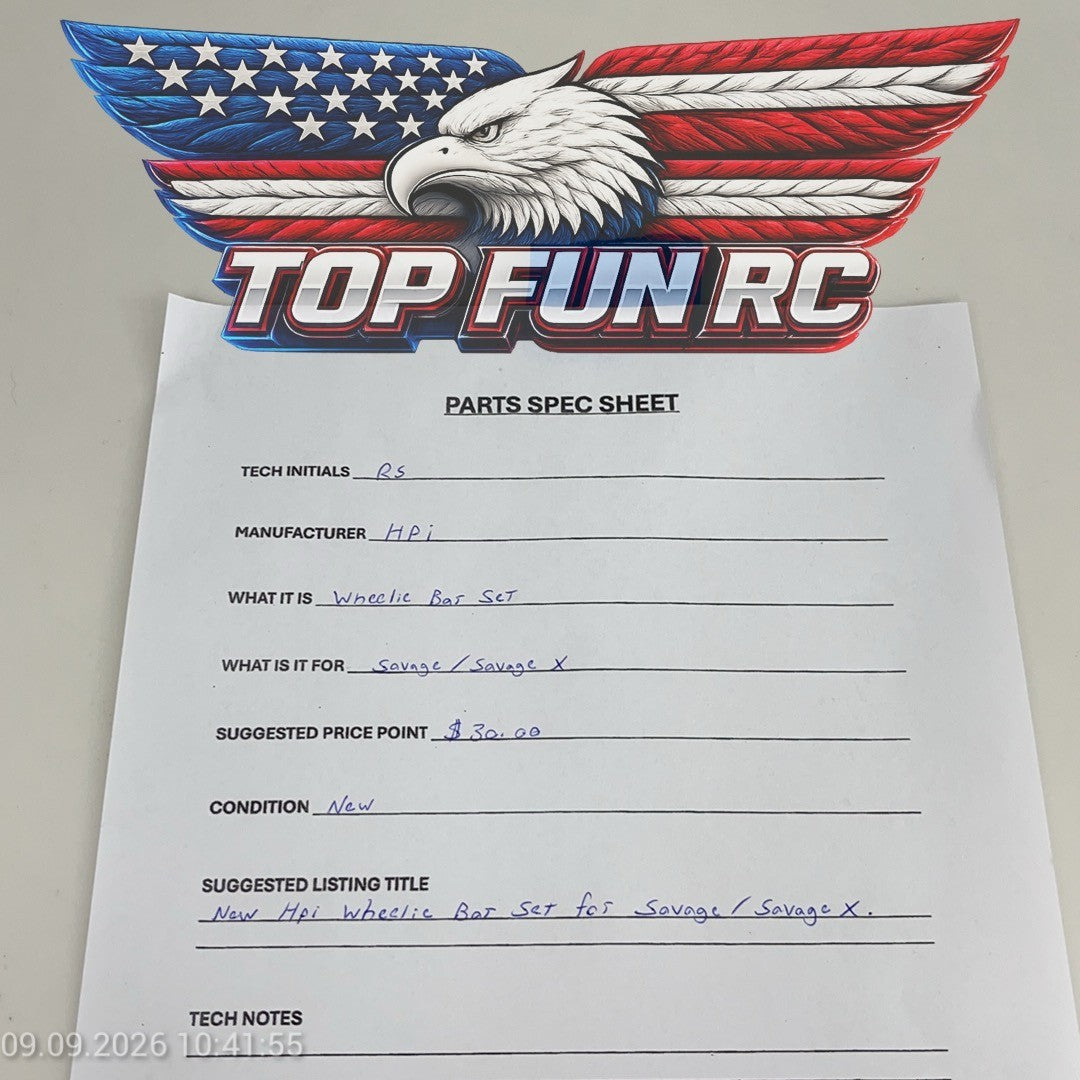 TOP FUN RC
PARTS SPEC SHEET
TECH INITIALS RS
MANUFACTURER HPi
WHAT IT IS Wheelie Bar Set
WHAT IS IT FOR Savage / Savage X
SUGGESTED PRICE POINT $30.00
CONDITION New
SUGGESTED LISTING TITLE
New Hpi Wheelie Bar Set for Savage / Savage X.
TECH NOTES
09.09.2026 10:41:55